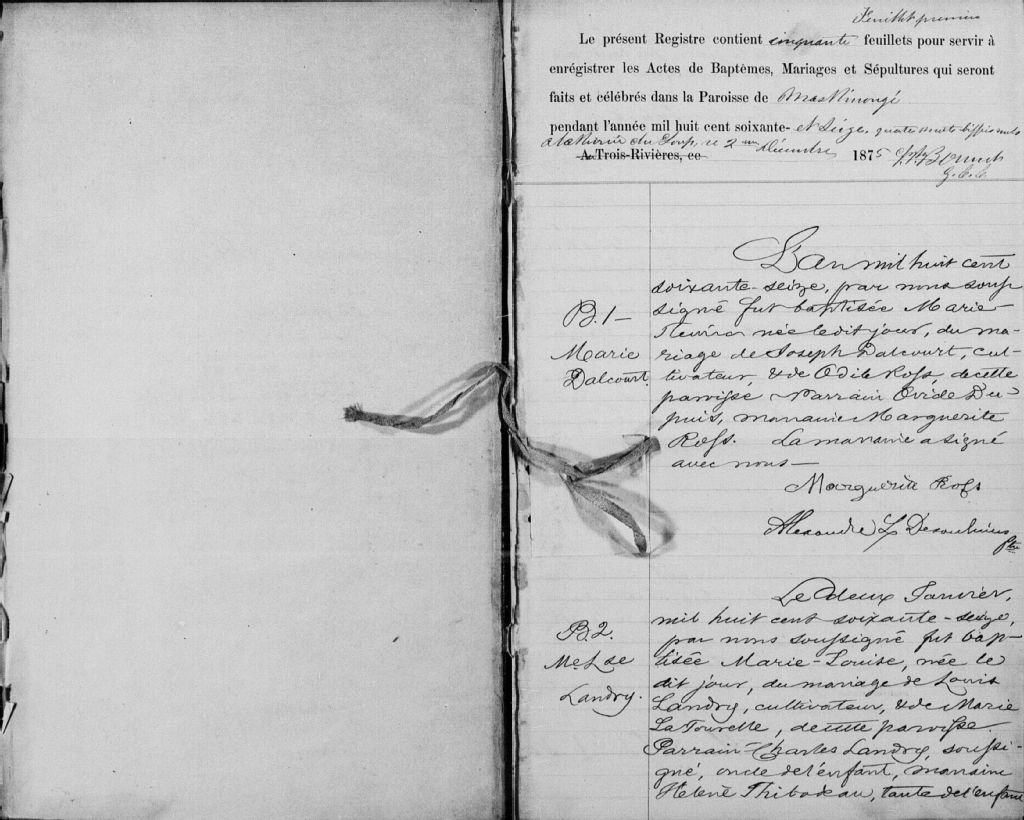 Feuillet premier
Le présent Registre contient cinquante feuillets pour servir à
enrégistrer les Actes de Baptêmes, Mariages et Sépultures qui seront
faits et célébrés dans la Paroisse de Maskinongé
pendant l'année mil huit cent soixante- et Seize, quatre mots biffés nuls
à la Rivière du Loup, ce 2 Décembre
A Trois-Rivières, ce 1875
B. 1 —
Marie
Dalcourt
L'an mil huit cent
soixante-seize, par nous sous
signé fut baptisée Marie
née le dit jour, du ma-
riage de Joseph Dalcourt, cul-
tivateur, & de Odile Ross, de cette
paroisse Parrain Ovide Du-
puis, marraine Marguerite
Ross. La marraine a signé
avec nous —
Marguerite Ross
Alexandre L Desaulniers
ptre
B. 2.
Me. Lse
Landry.
Le deux Janvier,
mil huit cent soixante-seize,
par nous soussigné fut bap-
tisée Marie-Louise, née le
dit jour, du mariage de Louis
Landry, cultivateur, & de Marie
La Tourelle, de cette paroisse.
Parrain Charles Landry, soussi-
gné, oncle de l'enfant, marraine
Helene Thibodeau, tante de l'enfant